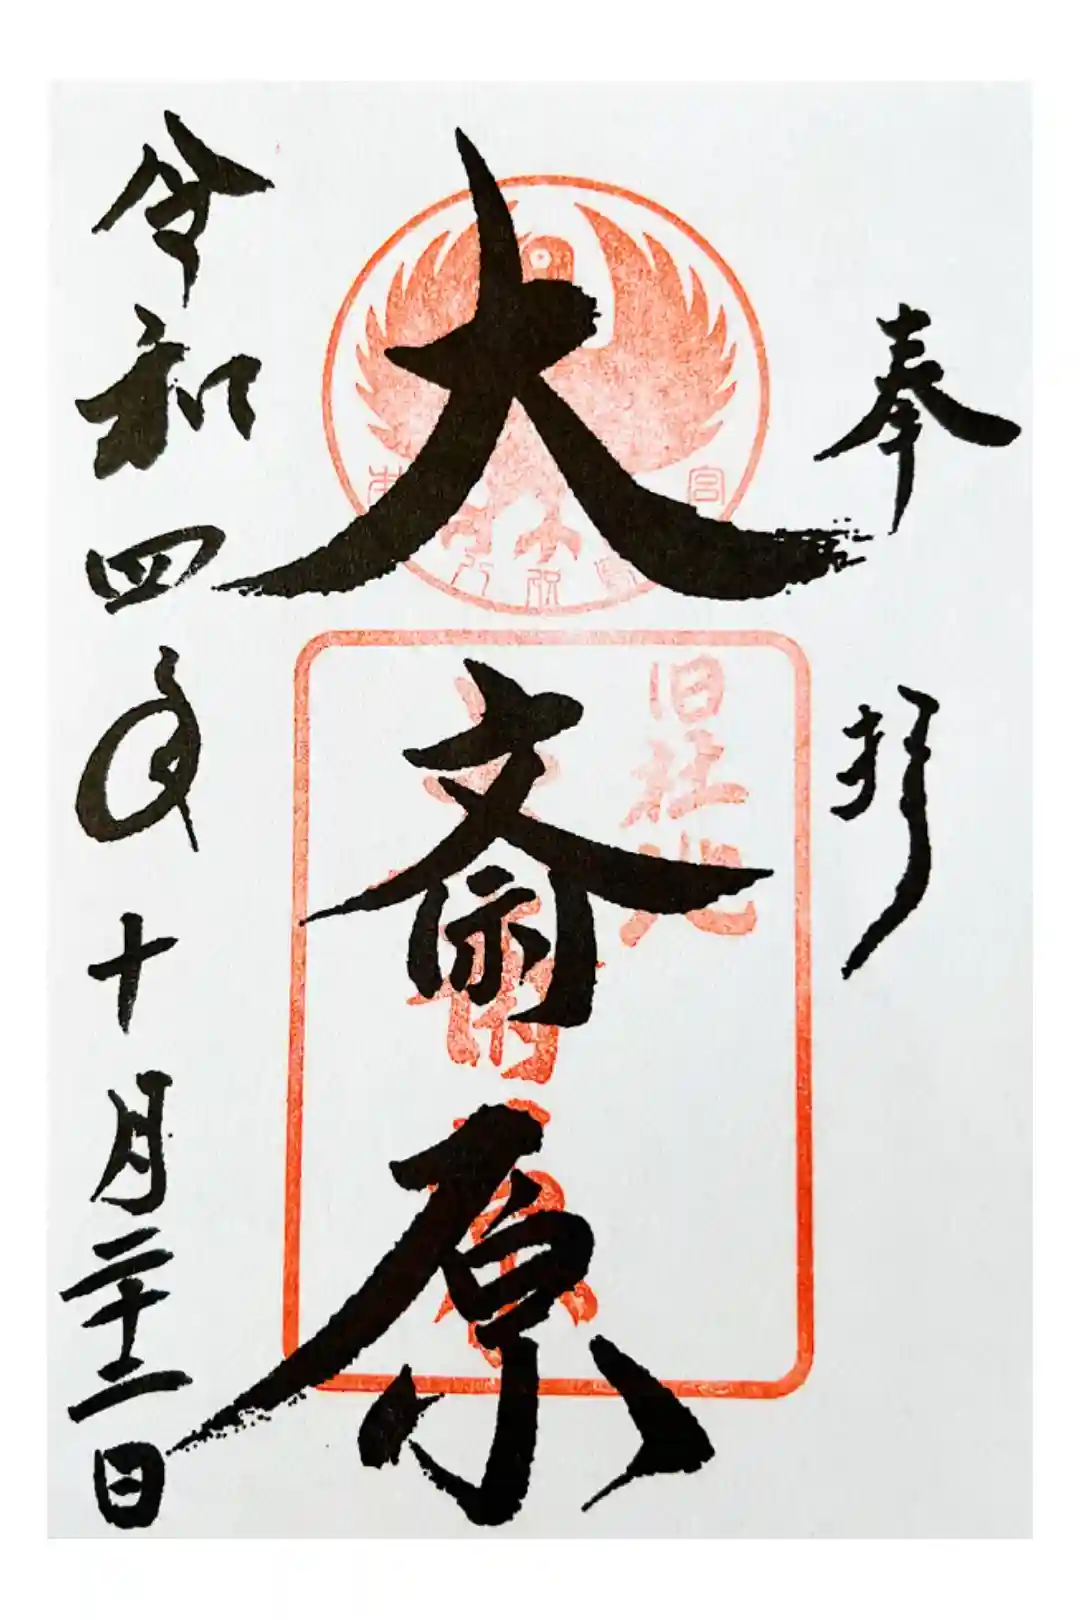 奉拝
大斎原
旧社地
大斎原
令和四年十月二十二日